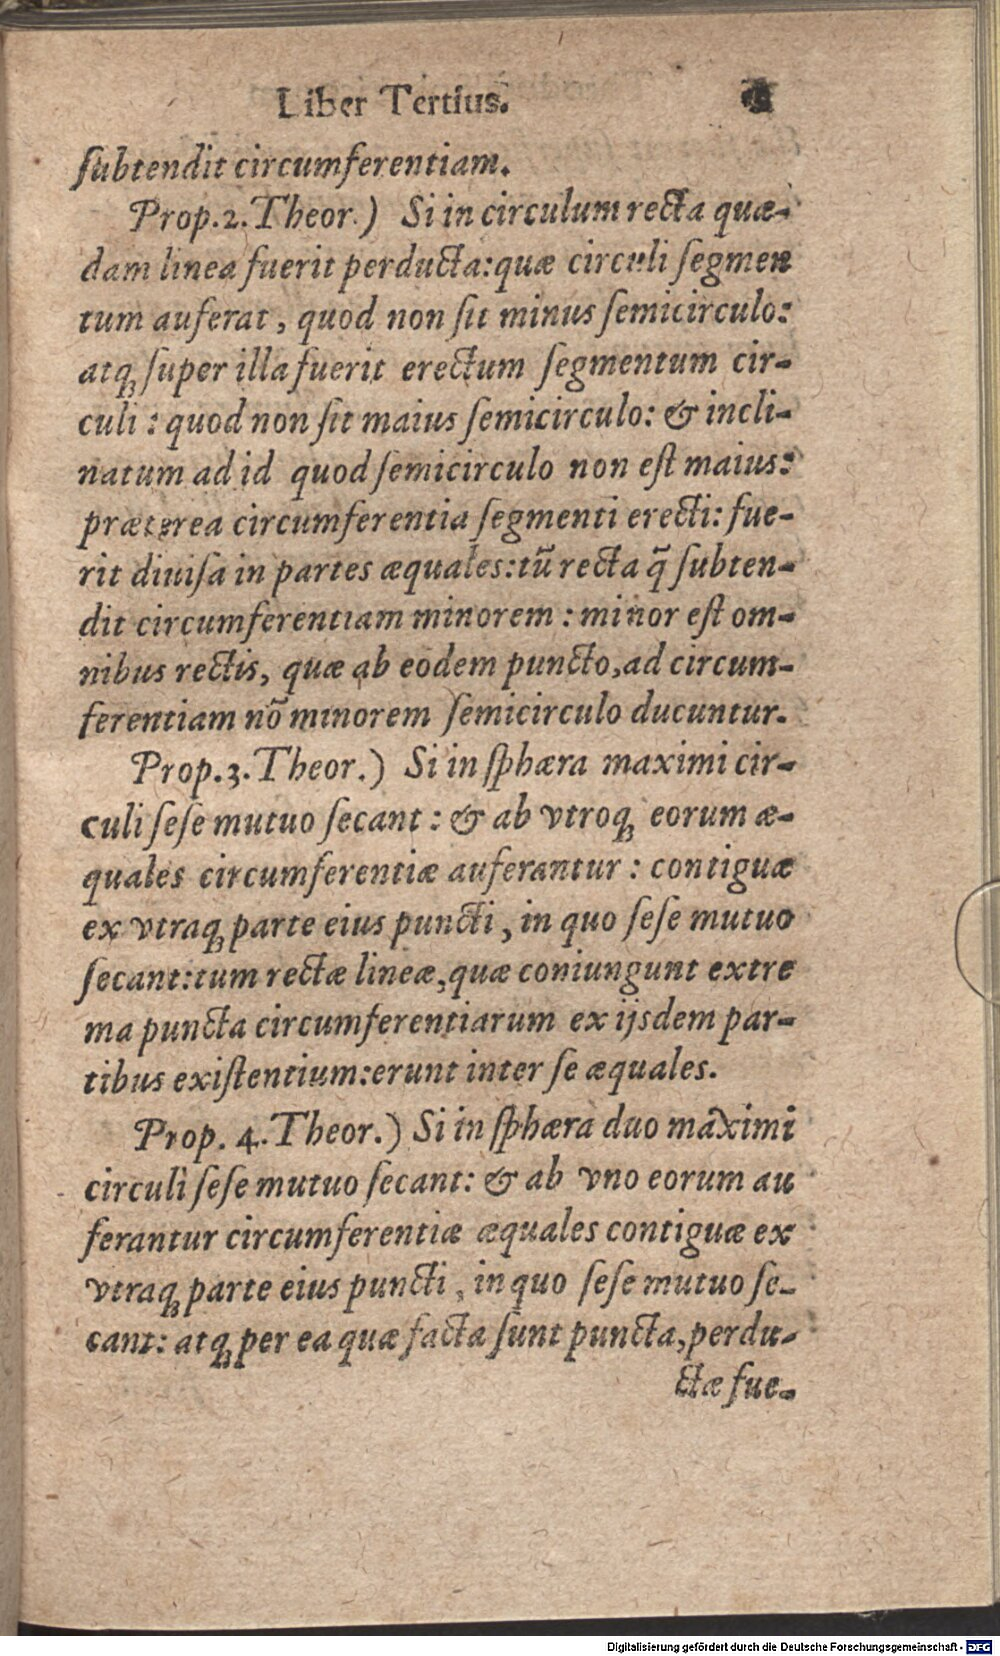 Liber Tertius.
ſubtendit circumferentiam.
Prop.2.Theor.) Si in circulum recta quæ-
dam linea fuerit perducta:quæ circuli ſegmen
tum auferat, quod non ſit minus ſemicirculo:
atqꝫ ſuper illa fuerit erectum ſegmentum cir-
culi : quod non ſit maius ſemicirculo: & incli-
natum ad id quod ſemicirculo non eſt maius:
præterea circumferentia ſegmenti erecti: fue-
rit diuiſa in partes æquales:tū recta q̄ ſubten-
dit circumferentiam minorem : minor eſt om-
nibus rectis, quæ ab eodem puncto,ad circum-
ferentiam nō minorem ſemicirculo ducuntur.
Prop.3.Theor.) Si in ſphæra maximi cir-
culi ſeſe mutuo ſecant : & ab vtroqꝫ eorum æ-
quales circumferentiæ auferantur : contiguæ
ex vtraqꝫ parte eius puncti, in quo ſeſe mutuo
ſecant:tum rectæ lineæ,quæ coniungunt extre
ma puncta circumferentiarum ex ijsdem par-
tibus exiſtentium:erunt inter ſe æquales.
Prop. 4.Theor.) Si in ſphæra duo maximi
circuli ſeſe mutuo ſecant: & ab vno eorum au
ferantur circumferentiæ æquales contiguæ ex
vtraqꝫ parte eius puncti, in quo ſeſe mutuo ſe-
cant: atqꝫ per ea quæ facta ſunt puncta,perdu-
ctæ fue-
Digitalisierung gefördert durch die Deutsche Forschungsgemeinschaft - DFG